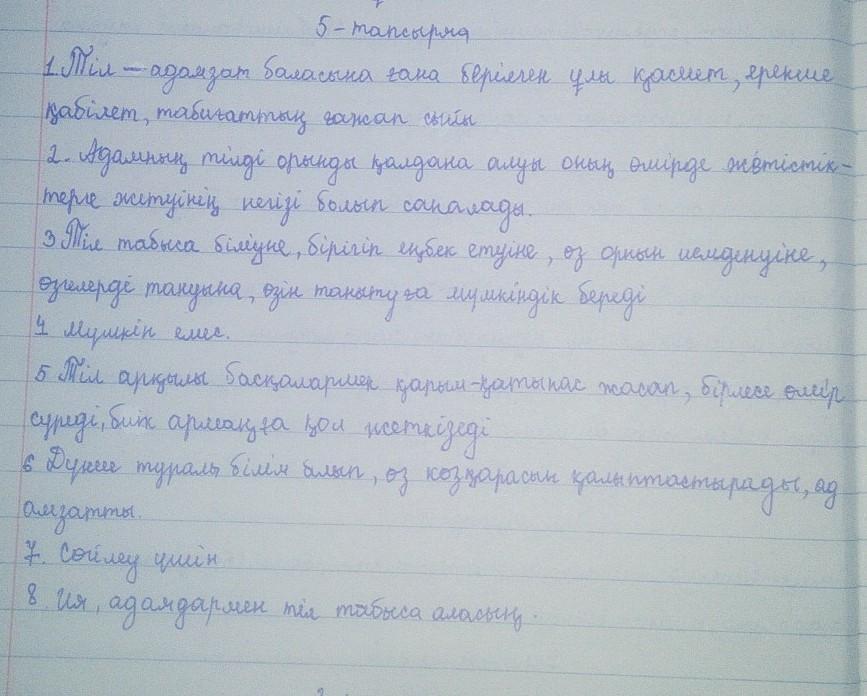 5-тапсырма
1. Тіл — адамзат баласына ғана берілген ұлы қасиет, ерекше
қабілет, табиғаттың ғажап сыйы
2. Адамның тілді орынды қалдана алуы оның өмірде жетістік-
терге жетуінің негізі болып саналады.
3 Тіл табыса білуіне, бірігіп еңбек етуіне, өз орнын иемденуіне,
өзгелерді тануына, өзін танытуға мүмкіндік береді
4 Мүмкін емес.
5 Тіл арқылы басқалармен қарым-қатынас жасап, бірлесе өмір
сүреді, биік арманға қол жеткізеді
6 Дүние туралы білім алып, өз көзқарасын қалыптастырады, ад
амзатты.
7. Сөйлеу үшін
8. Ия, адамдармен тіл табыса аласың.